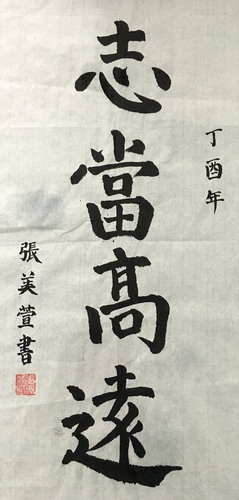 丁酉年
志當髙遠
張美萱書